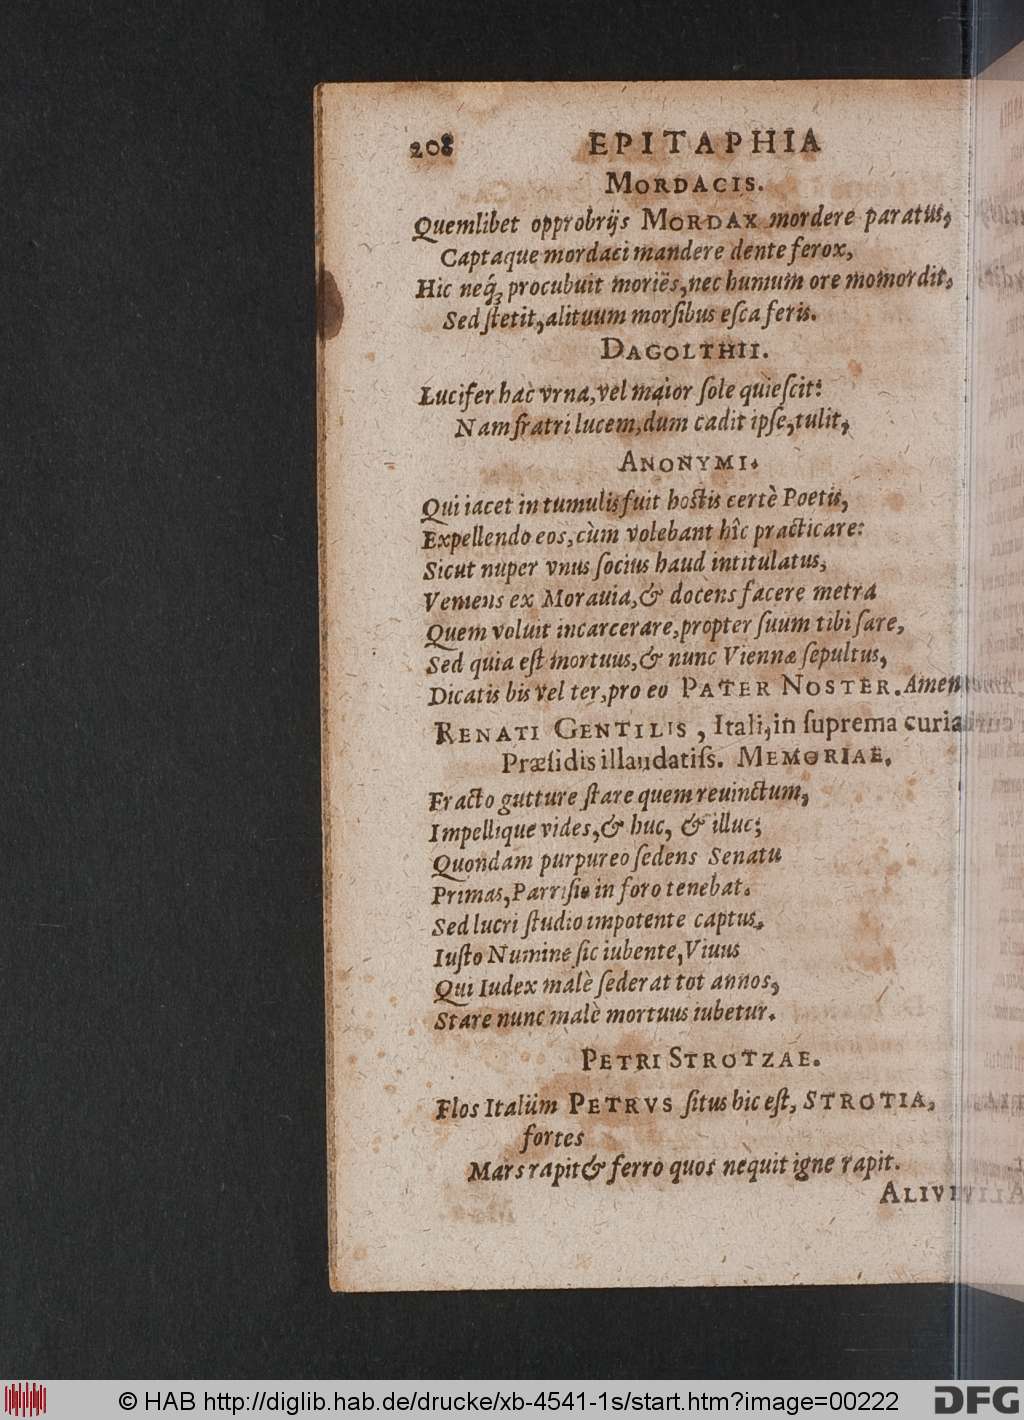 208 EPITAPHIA
MORDACIS.
Quemlibet opprobrijs MORDAX mordere paratus,
Captaque mordaci mandere dente ferox,
Hic neq́; procubuit moriẽs, nec humum ore momordit,
Sed ſtetit, alituum morſibus eſca feris.
DAGOLTHII.
Lucifer hac vrna, vel maior ſole quieſcit:
Nam fratri lucem, dum cadit ipſe, tulit,
ANONYMI.
Qui iacet in tumulis fuit hoſtis certè Poetis,
Expellendo eos, cùm volebant hîc practicare:
Sicut nuper vnus ſocius haud intitulatus,
Veniens ex Morauia, & docens facere metra
Quem voluit incarcerare, propter ſuum tibi ſare,
Sed quia eſt mortuus, & nunc Viennæ ſepultus,
Dicatis bis vel ter, pro eo PATER NOSTER. Amen
RENATI GENTILIS, Itali, in ſuprema curia
Præſidis illaudatiſs. MEMORIAE.
Fracto gutture ſtare quem reuinctum,
Impellique vides, & huc, & illuc;
Quondam purpureo ſedens Senatu
Primas, Parriſio in foro tenebat.
Sed lucri ſtudio impotente captus,
Iuſto Numine ſic iubente, Viuus
Qui Iudex malè ſederat tot annos,
Stare nunc malè mortuus iubetur.
PETRI STROTZAE.
Flos Italûm PETRVS ſitus hic eſt, STROTIA,
fortes
Mars rapit & ferro quos nequit igne rapit.
ALIVI
© HAB http://diglib.hab.de/drucke/xb-4541-1s/start.htm?image=00222 DFG